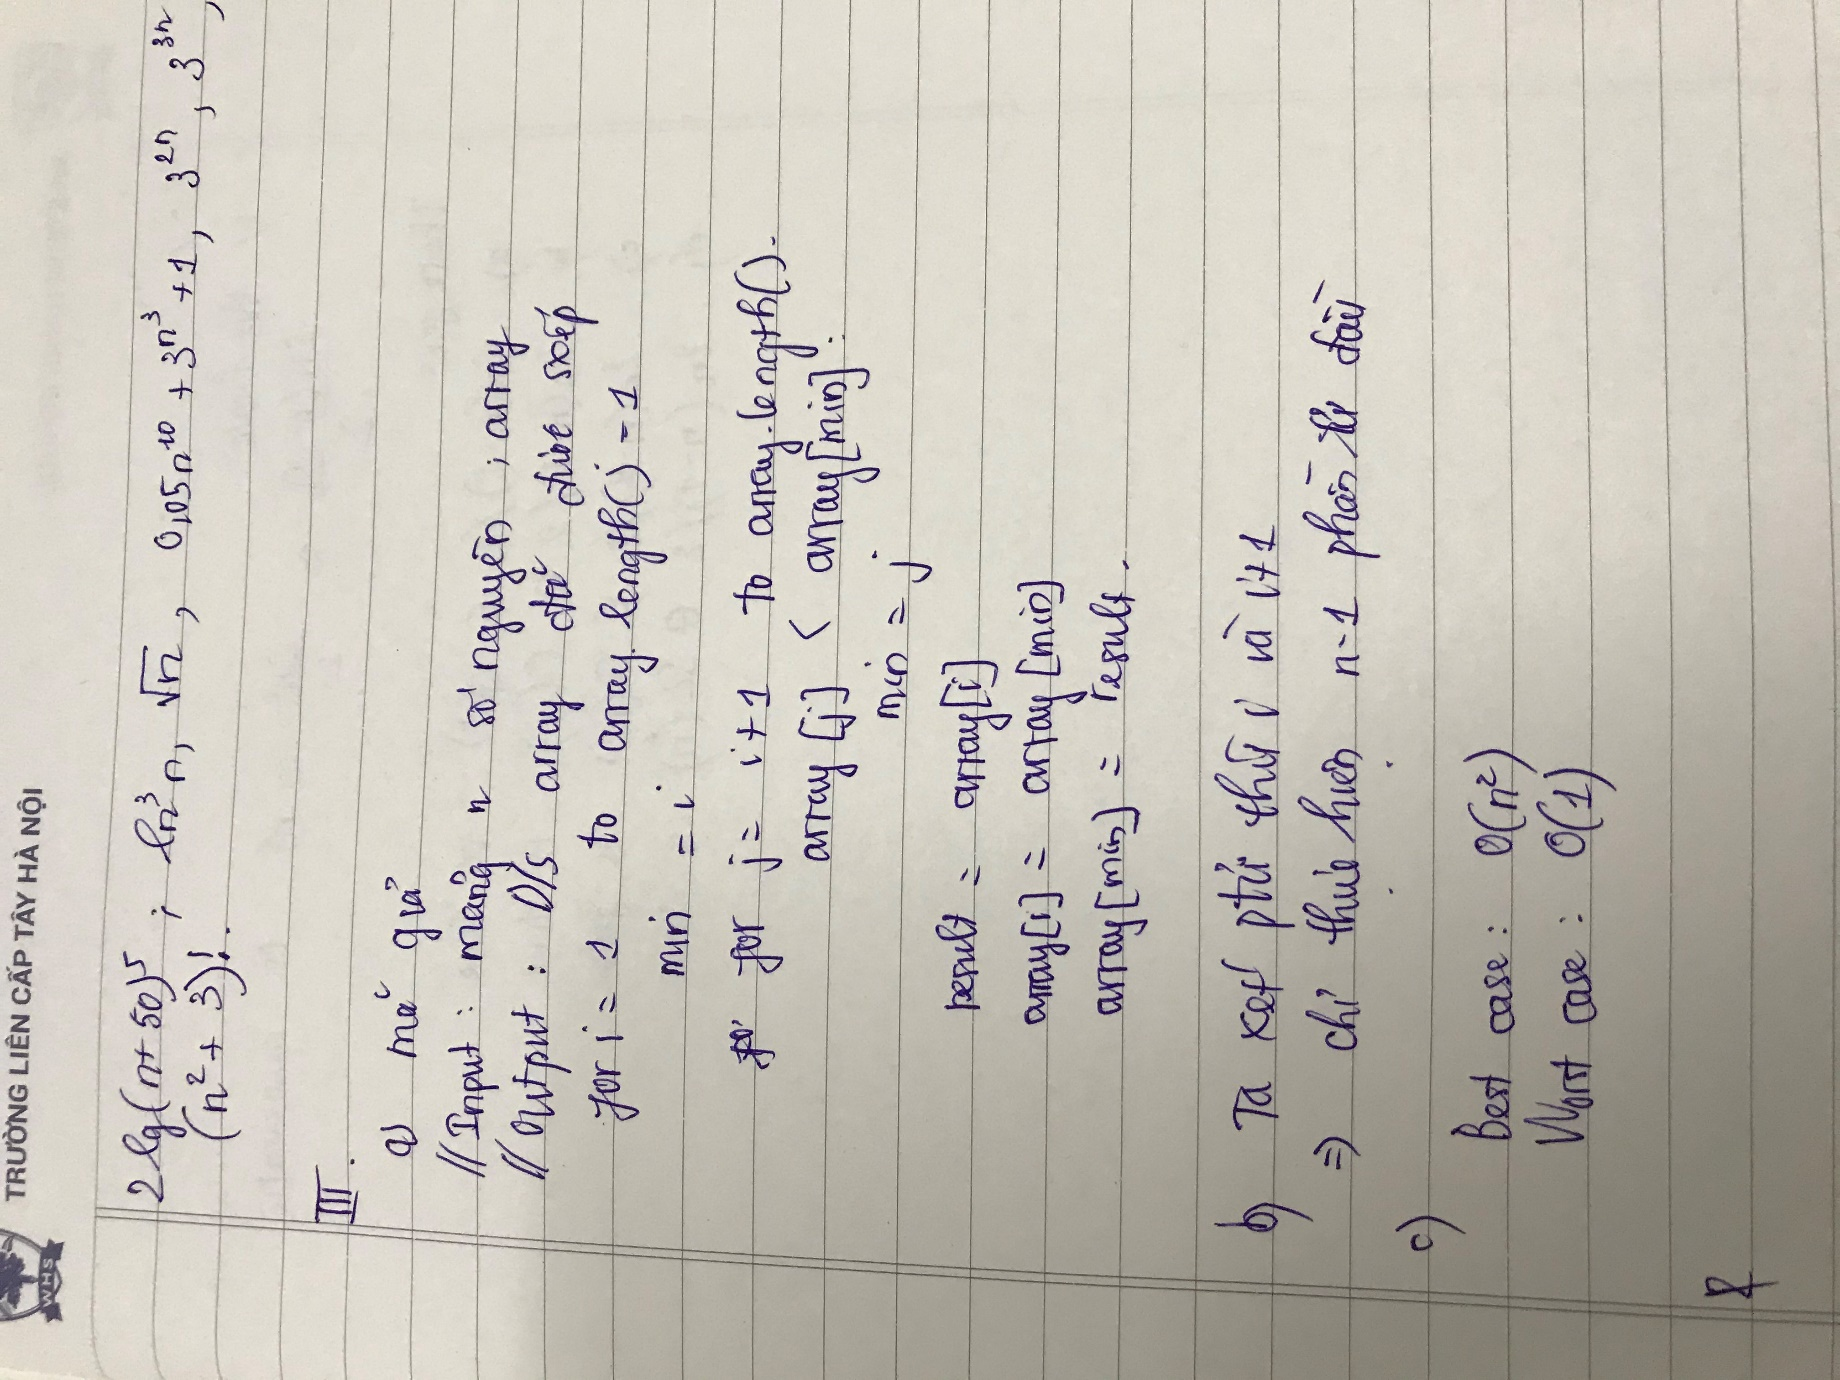 TRƯỜNG LIÊN CẤP TÂY HÀ NỘI
WHS
2 lg(n+50)⁵ ; ln³n, √n, 0,05n¹⁰ + 3n³ + 1, 3²ⁿ, 3³ⁿ,
(n² + 3)!.
III.
a) mã giả
// Input : mảng n số nguyên ; array
// Output : D/S array đã được sxếp
for i = 1 to array.length() - 1
min = i
for j = i+1 to array.length().
array[j] < array[min] :
min = j
result = array[i]
array[i] = array[min]
array[min] = result.
b) Ta xét ptử thứ i và i+1
⇒ chỉ thực hiện n-1 phần tử đầu
c)
Best case : O(n²)
Worst case : O(1)